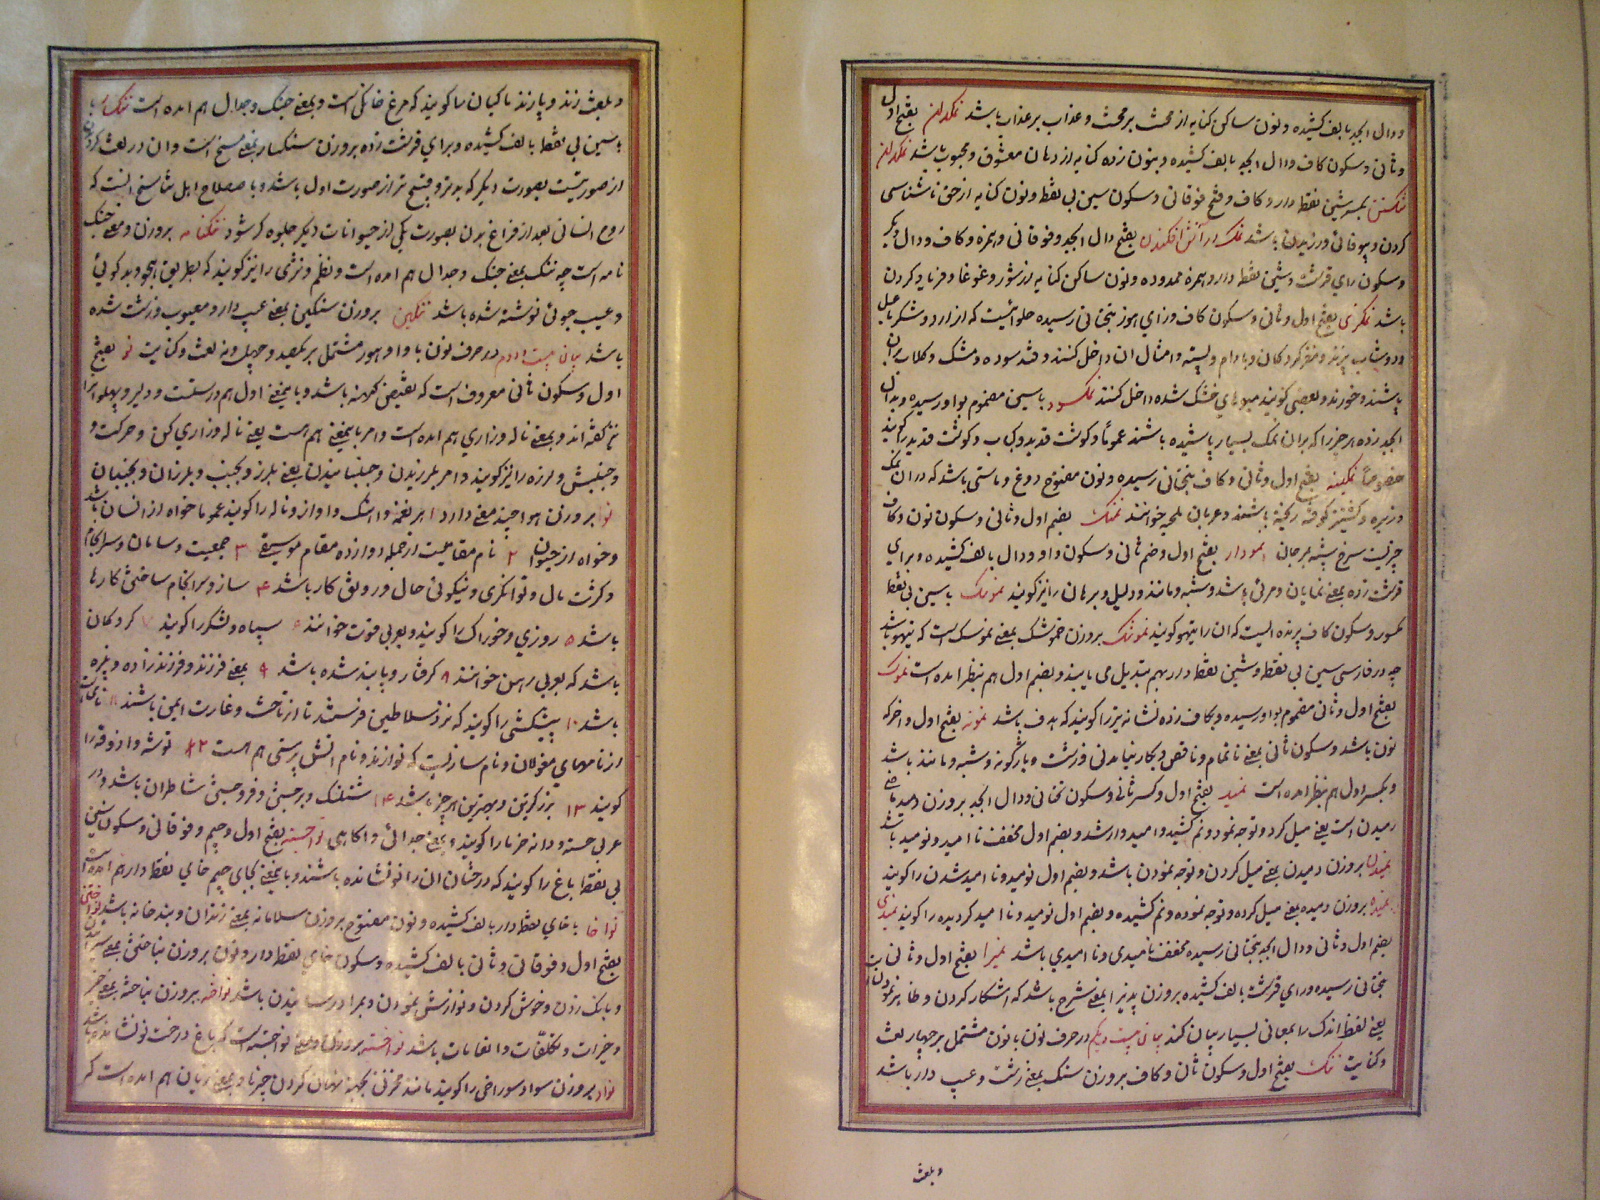 و دال ابجد بالف کشیده و نون ساکن کنایه از محنت بر محنت و عذاب بر عذاب باشد نمکدان بفتح اول
و ثانی و سکون کاف و دال ابجد بالف کشیده و بنون زده کنایه از دهان معشوق و محبوب باشد نمکدان
شکستن بکسر شین نقطه دار و کاف و فتح فوقانی و سکون سین بی نقطه و نون کنایه از حق ناشناسی
کردن و بیوفائی ورزیدن باشد نمک در آتش افکندن بفتح دال ابجد و فوقانی و همزه و کاف و دال دیگر
و سکون رای قرشت و شین نقطه دار و همزه ممدوده و نون ساکن کنایه از شور و غوغا و فریاد کردن
باشد نمکزی بفتح اول و ثانی و سکون کاف و زای هوز بتحتانی رسیده حلوائیست که از آرد و شکر یا عسل
و دوشاب پزند و مغز گردکان و بادام و پسته و امثال آن داخل کنند و قند سوده و مشک و گلاب بران
پاشند و خورند و بعضی گویند میوهای خشک شده داخل کنند نمکسود با سین مضموم بواو رسیده و بدال
ابجد زده هر چیز را که بران نمک بسیار پاشیده باشند عموما و گوشت قدید و کباب و گوشت قدید را گویند
خصوصا نمکینه بفتح اول و ثانی و کاف بتحتانی رسیده و نون مفتوح دوغ و ماستی باشد که در آن نمک
و زیره و گشنیز کوفته ریخته باشند و عربان ملحیه خوانند نمنک بضم اول و ثانی و سکون نون و کاف
چیزیست سرخ شبیه بمرجان نمودار بفتح اول و ضم ثانی و سکون واو و دال بالف کشیده و برای
قرشت زده بمعنی نمایان و مرئی باشد و شبه و مانند و دلیل و برهان را نیز گویند نموسک با سین بی نقطه
مکسور و سکون کاف پرنده ایست که آن را تیهو گویند نموشک بروزن خموشک بمعنی نموسک است که تیهو باشد
چه در فارسی سین بی نقطه و شین نقطه دار بهم تبدیل می یابند و بضم اول هم بنظر آمده است نموک
بفتح اول و ثانی مضموم بواو رسیده و بکاف زده نشانه تیر را گویند که هدف باشد نمونه بفتح اول و آخر که
نون باشد و سکون ثانی بمعنی ناتمام و ناقص و بکار نیامدنی و زشت و باژگونه و شبه و مانند باشد
و بکسر اول هم بنظر آمده است نمید بفتح اول و کسر ثانی و سکون تحتانی و دال ابجد بروزن دمید ماضی
رمیدن است یعنی میل کرد و توجه نمود و نم کشید و امیدوار شد و بضم اول مخفف ناامید و نومید باشد
نمیدن بروزن دمیدن بمعنی میل کردن و توجه نمودن باشد و بضم اول نومید و ناامید شدن را گویند
نمیده بروزن دمیده بمعنی میل کرده و توجه نموده و نم کشیده و بضم اول نومید و ناامید گردیده را گویند نمیدی
بضم اول و ثانی و دال ابجد بتحتانی رسیده مخفف نامیدی و ناامیدی باشد نمیرا بفتح اول و ثانی
بتحتانی رسیده و رای قرشت بالف کشیده بروزن پذیرا بمعنی شرح باشد که آشکار کردن و ظاهر نمودنست
یعنی لفظ اندک را بمعانی بسیار بیان کنند بیان بیست و یکم در حرف نون با نون مشتمل بر چهار لغت
و کنایت ننگ بفتح اول و سکون ثانی و کاف بروزن سنگ بمعنی زشت و عیب دار باشد
و بلغت
و بلغت زند و پازند ماکیان را گویند که مرغ خانگی است و بمعنی جنگ و جدال هم آمده است ننگسار با
با سین بی نقطه بالف کشیده و برای قرشت زده بروزن سنگسار بمعنی مسخ است و آن در لغت گردیدن
از صورتیست بصورت دیگر که بدتر و قبیح تر از صورت اول باشد و باصطلاح اهل تناسخ آنست که
روح انسانی بعد از فراغ بدن بصورت یکی از حیوانات دیگر جلوه گر شود ننگنامه بروزن و معنی جنگ
نامه است چه ننگ بمعنی جنگ و جدال هم آمده است و نظم و نثری را نیز گویند که بطریق هجو و بد گوئی
و عیب جوئی نوشته شده باشد ننگین بروزن سنگین بمعنی عیب دار و معیوب و زشت شده
باشد بیان بیست و دوم در حرف نون با واو هوز مشتمل بر یکصد و چهل و نه لغت و کنایت نو بفتح
اول و سکون ثانی معروفست که نقیض کهنه باشد و بمعنی اول هم درستست و دلیر و پهلوانرا
نیز گفته اند و بمعنی ناله و زاری هم آمده است و امر باینمعنی هم است یعنی ناله و زاری کن و حرکت و
و جنبش و لرزه را نیز گویند و امر بلرزیدن و جنبانیدن یعنی بلرز و بجنب و بلرزان و بجنبان
نوا بروزن هوا چند معنی دارد ۱ هر نغمه و آهنگ و آواز و ناله را گویند عموما خواه از انسان باشد
و خواه از حیوان ۲ نام مقامیست از جمله دوازده مقام موسیقی ۳ جمعیت و سامان و سرانجام
و کثرت مال و توانگری و نیکوئی حال و رونق کار باشد ۴ ساز و سرانجام ساختن کارها
باشد ۵ روزی و خوراک را گویند و بعربی قوت خوانند ۶ سپاه و لشکر را گویند ۷ گروگان
باشد که بعربی رهن خوانند ۸ گرفتار و پابند شده باشد ۹ بمعنی فرزند و فرزند زاده و نبیره
باشد ۱۰ پیشکشی را گویند که نزد سلاطین فرستند تا از تاخت و غارت ایمن باشند ۱۱ نامیست
از نامهای مغولان و نام سازیست که نوازند و نام آتش پرستی هم هست ۱۲ توشه و آذوقه را
گویند ۱۳ بزرگترین و بهترین هر چیز باشد ۱۴ شتلنگ و برجستن و فرو جستن شاطران باشد و در
عربی خسته و دانه خرما را گویند و بمعنی جدائی و آگاهی نواجسته بفتح اول و جیم و فوقانی و سکون سین
بی نقطه باغ را گویند که درختان آن را نو نشانده باشند و باینمعنی بجای جیم خای نقطه دار هم آمده است
نواخانه با خای نقطه دار بالف کشیده و نون مفتوح بروزن سلامانه بمعنی زندان و بند خانه باشد نواختن
بفتح اول و فوقانی و ثانی بالف کشیده و سکون خای نقطه دار و نون بروزن نباختن بمعنی سرائیدن
و بانگ زدن و خوش کردن و نوازش نمودن و بمراد رسانیدن باشد نواخته بروزن نباخته بمعنی خیر
و خیرات و تکلفات و انعامات باشد نواخسته بروزن و معنی نواجسته است که باغ درخت نو نشانده باشد
نواد بروزن سواد سوراخی را گویند مانند مخزنی بجهة پنهان کردن چیزها و بمعنی زبان هم آمده است که